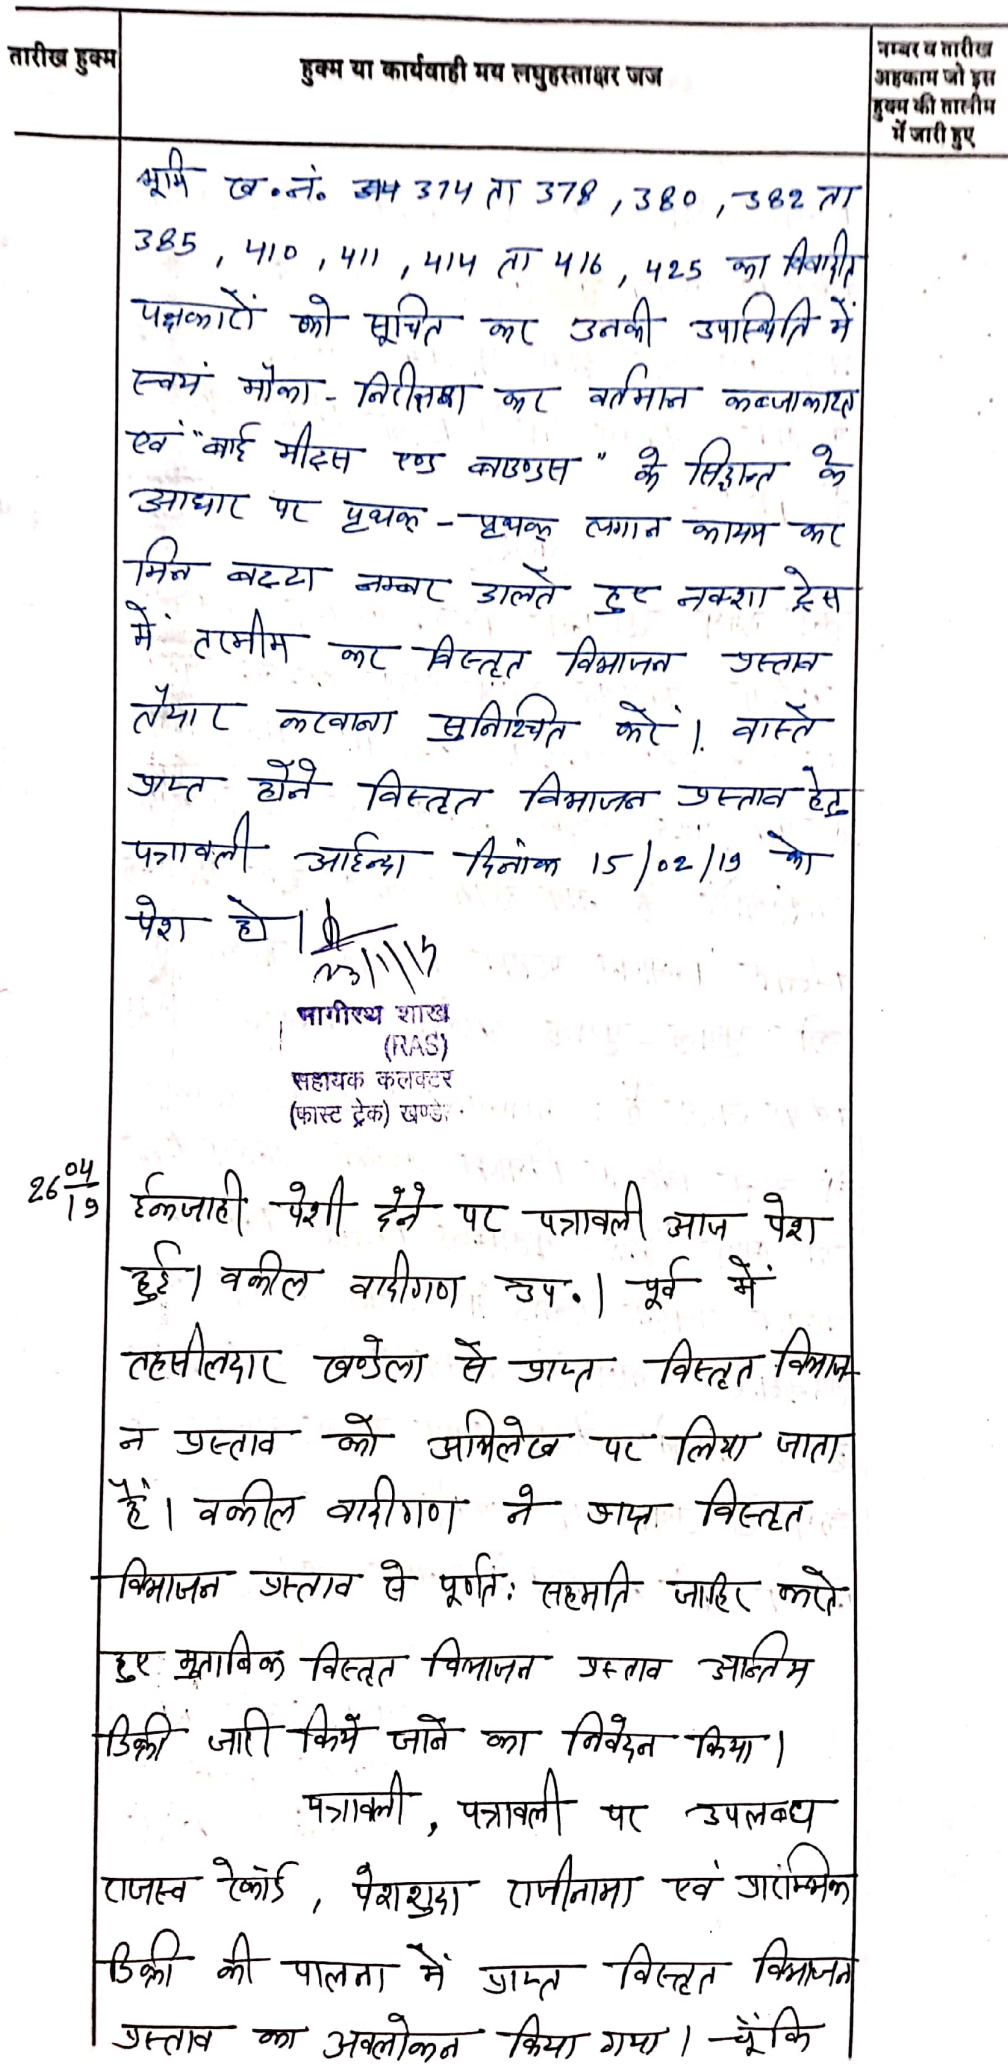 तारीख हुक्म
हुक्म या कार्यवाही मय लघुहस्ताक्षर जज
नम्बर व तारीख
अहकाम जो इस
हुक्म की तालीम
में जारी हुए
भूमि ख.नं. 374 ता 378, 380, 382 ता
385, 410, 411, 414 ता 416, 425 का विवादित
पक्षकारों को सूचित कर उनकी उपस्थिति में
स्वयं मौका - निरीक्षण कर वर्तमान कब्जाकाश्त
एवं "बाई मीट्स एण्ड बाउण्डस" के सिद्वान्त के
आधार पर पृथक् - पृथक् लगान कायम कर
मिन बट्टा नम्बर डालते हुए नक्शा ट्रेस
में तरमीम कर विस्तृत विभाजन प्रस्ताव
तैयार करवाना सुनिश्चित करें। वास्ते
प्राप्त होने विस्तृत विभाजन प्रस्ताव हेतु
पत्रावली आईन्दा दिनांक 15/02/19 को
पेश हो।
भागीरथ शाख
(RAS)
सहायक कलक्टर
(फास्ट ट्रेक) खण्डे
26 04/19
ईकजाही पेशी देने पर पत्रावली आज पेश
हुई। वकील वादीगण उप.। पूर्व में
तहसीलदार खण्डेला से प्राप्त विस्तृत विभाज
न प्रस्ताव को अभिलेख पर लिया जाता
हैं। वकील वादीगण ने प्राप्त विस्तृत
विभाजन प्रस्ताव से पूर्णतः सहमति जाहिर करते
हुए मुताबिक विस्तृत विभाजन प्रस्ताव अन्तिम
डिक्री जारी किये जाने का निवेदन किया।
पत्रावली, पत्रावली पर उपलब्ध
राजस्व रेकॉर्ड, पेशशुदा राजीनामा एवं प्रारम्भिक
डिक्री की पालना में प्राप्त विस्तृत विभाजन
प्रस्ताव का अवलोकन किया गया। चूँकि